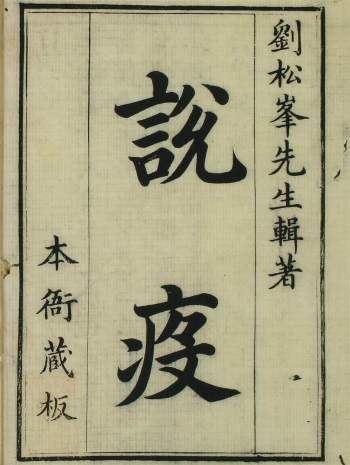 劉松峯先生輯著
說疫
本衙蔵板